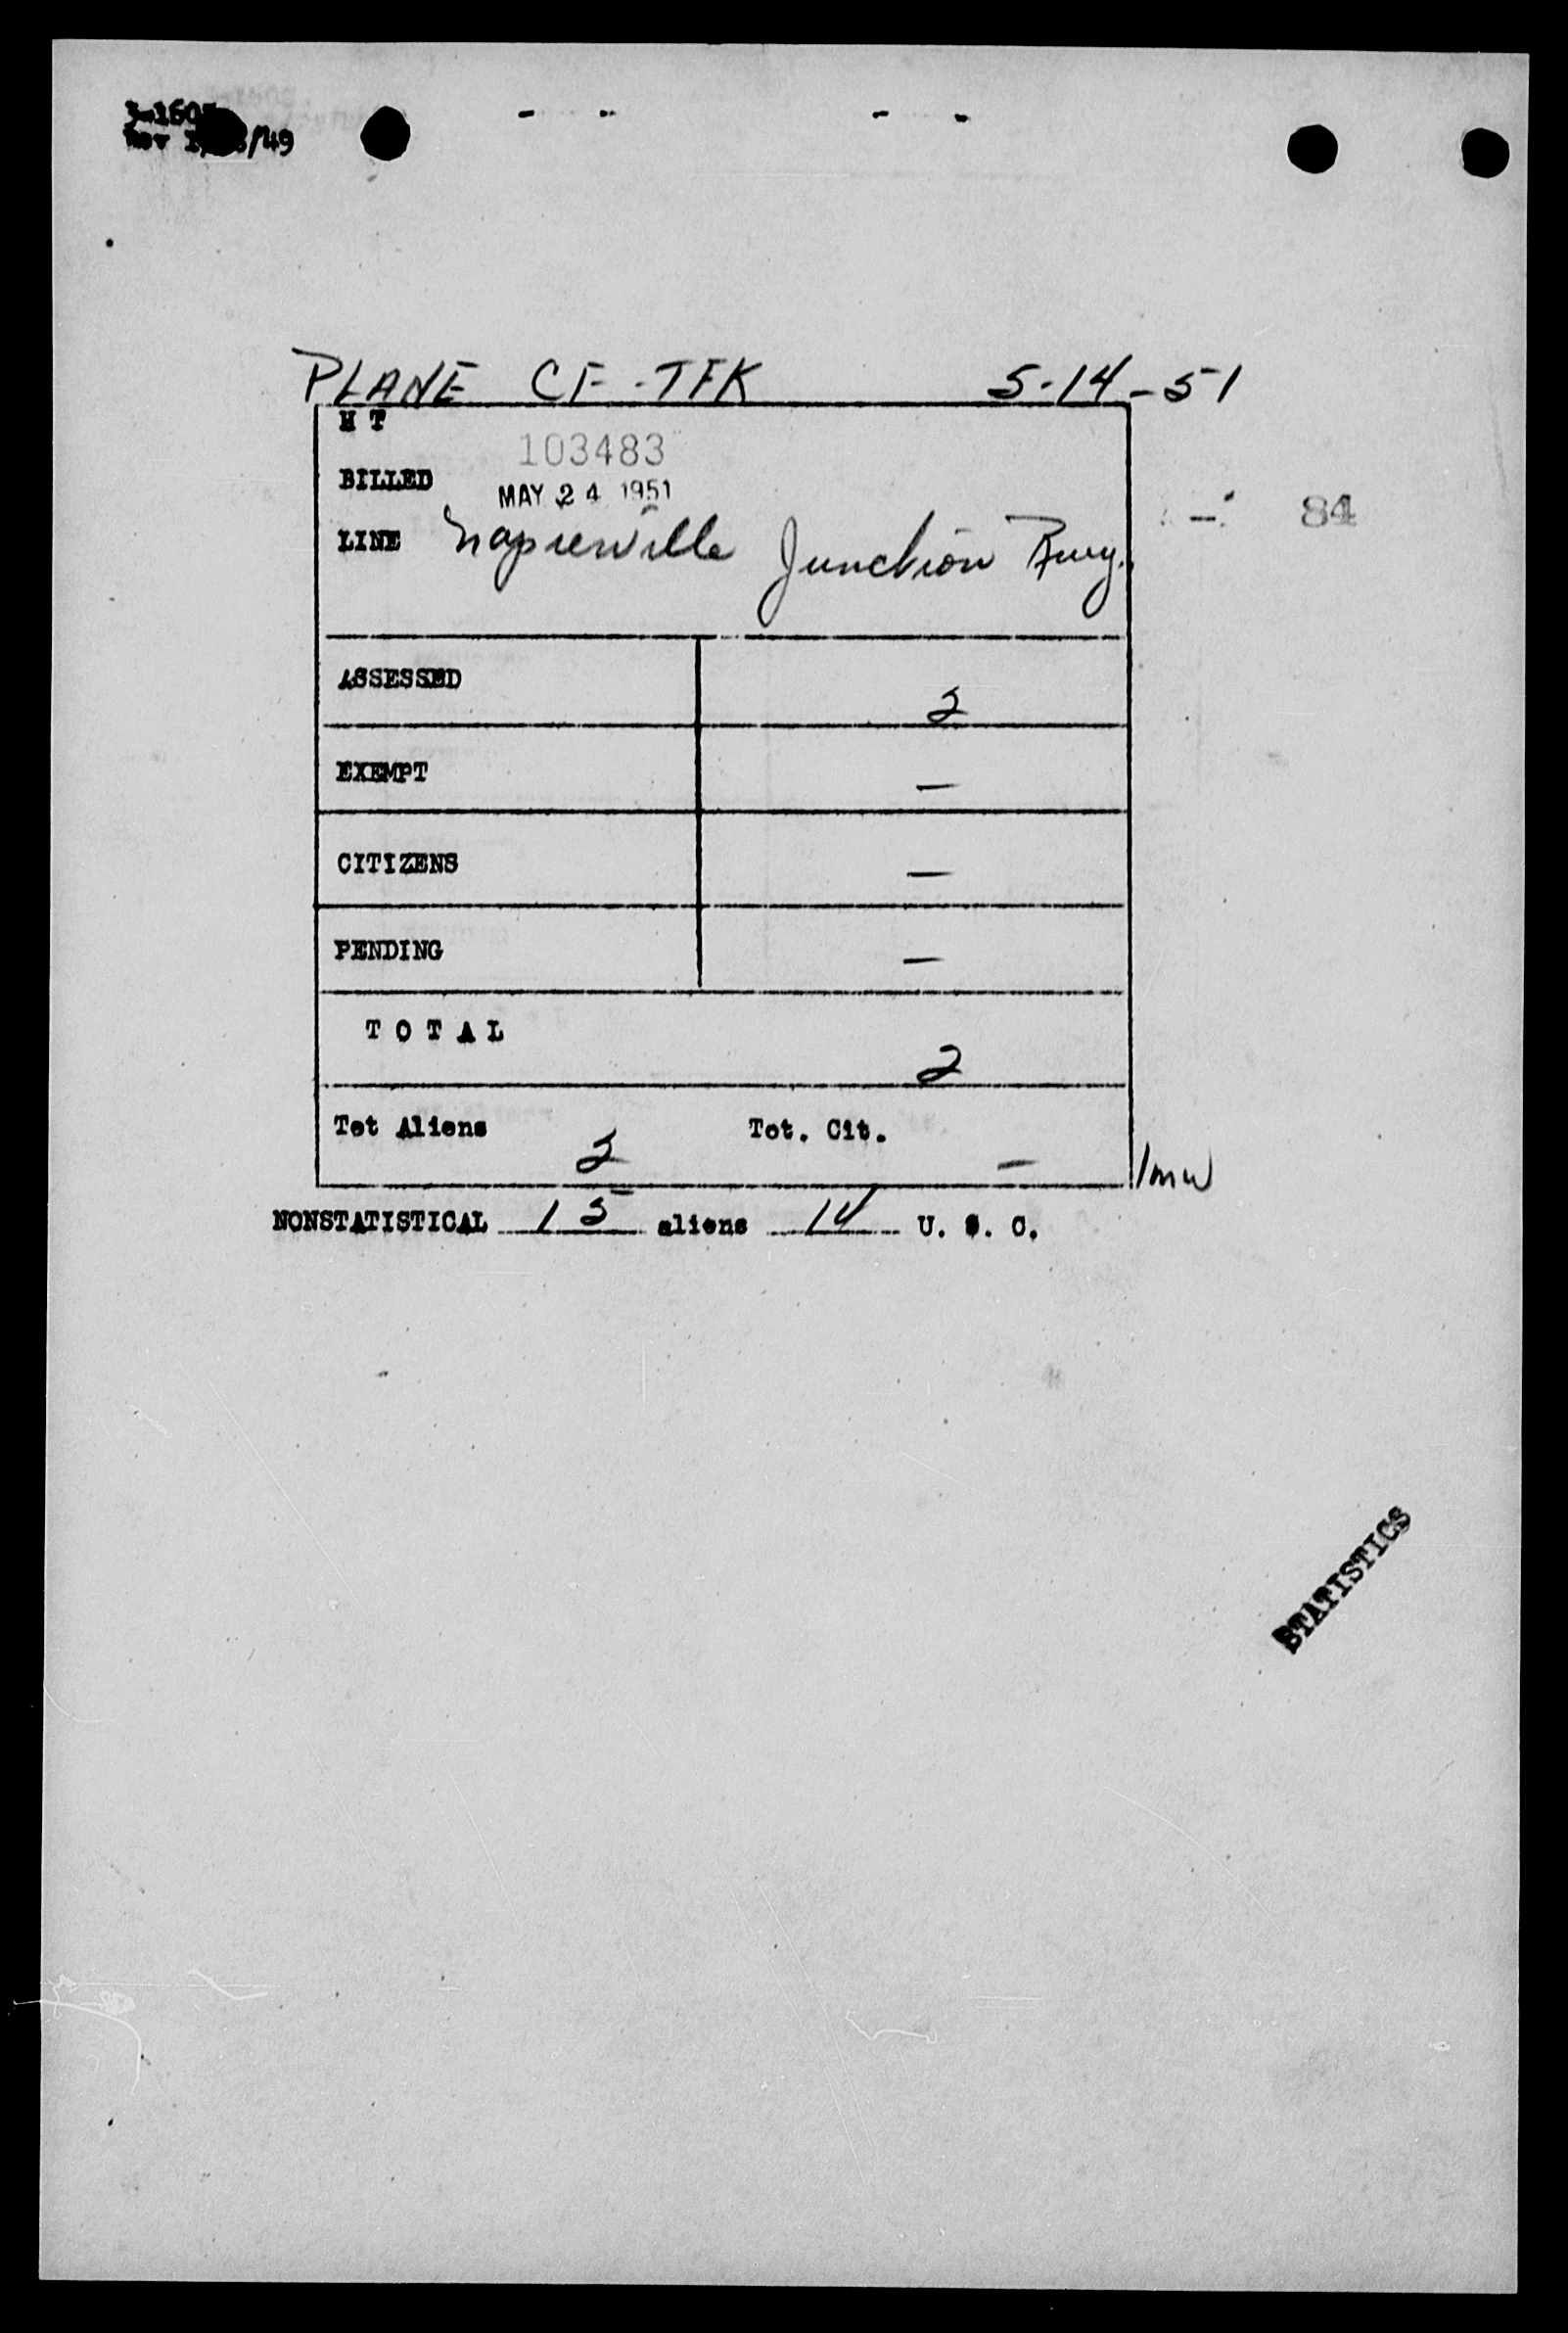 PLANE CF-TFK 5-14-51
H T
103483
BILLED MAY 24 1951
84
LINE Napierville Junction Rwy.
ASSESSED 2
EXEMPT —
CITIZENS —
PENDING —
TOTAL 2
Tot Aliens 2 Tot. Cit. —
NONSTATISTICAL 15 aliens 14 U. S. C.
STATISTICS